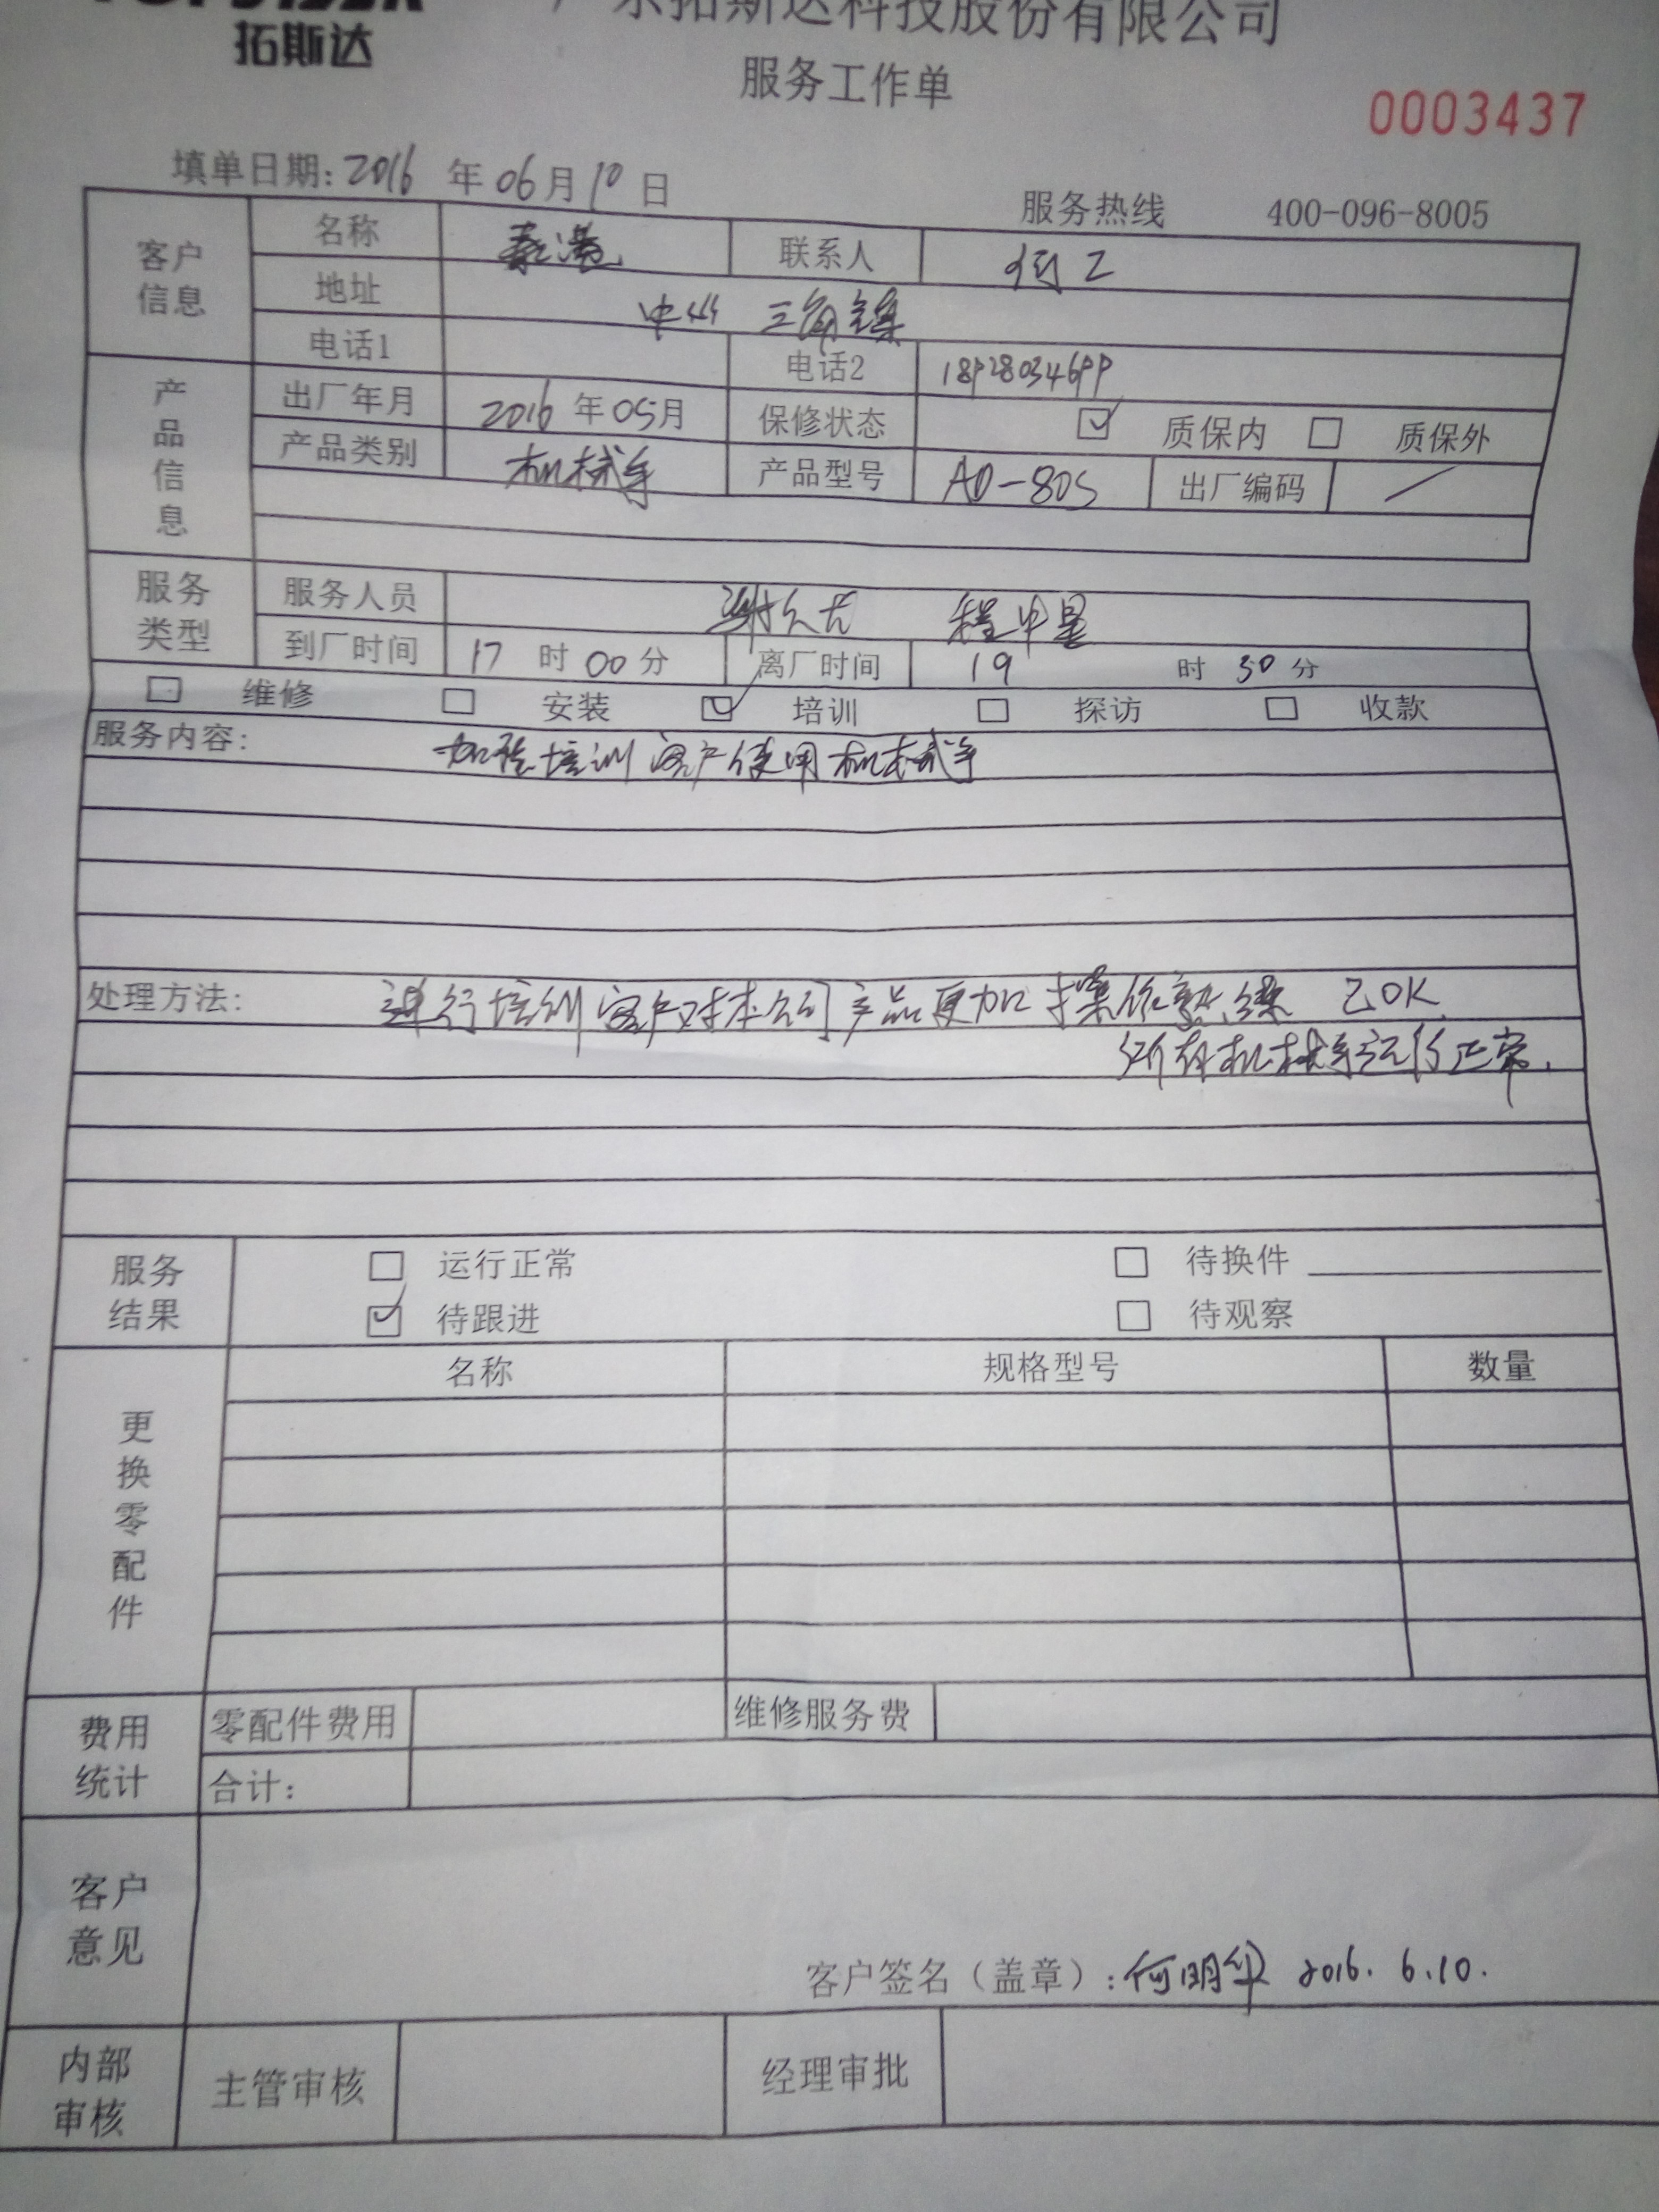 拓斯达
广东拓斯达科技股份有限公司
服务工作单
0003437
填单日期: 2016 年 06 月 10 日
服务热线 400-096-8005
客户信息 名称 联系人 何工
地址 中山 三角镇
电话1 电话2 18928034699
产品信息 出厂年月 2016 年 05 月 保修状态 ☑ 质保内 □ 质保外
产品类别 机械手 产品型号 AD-80S 出厂编码 /
服务类型 服务人员 程中星
到厂时间 17 时 00 分 离厂时间 19 时 30 分
□ 维修 □ 安装 ☑ 培训 □ 探访 □ 收款
服务内容: 加强培训客户使用机械手
处理方法: 进行培训客户对本公司产品更加操作熟练 已OK.
所有机械手运行正常.
服务结果 □ 运行正常 □ 待换件
☑ 待跟进 □ 待观察
更换零配件 名称 规格型号 数量
费用统计 零配件费用 维修服务费
合计:
客户意见
客户签名（盖章）: 何明华 2016. 6.10.
内部审核 主管审核 经理审批